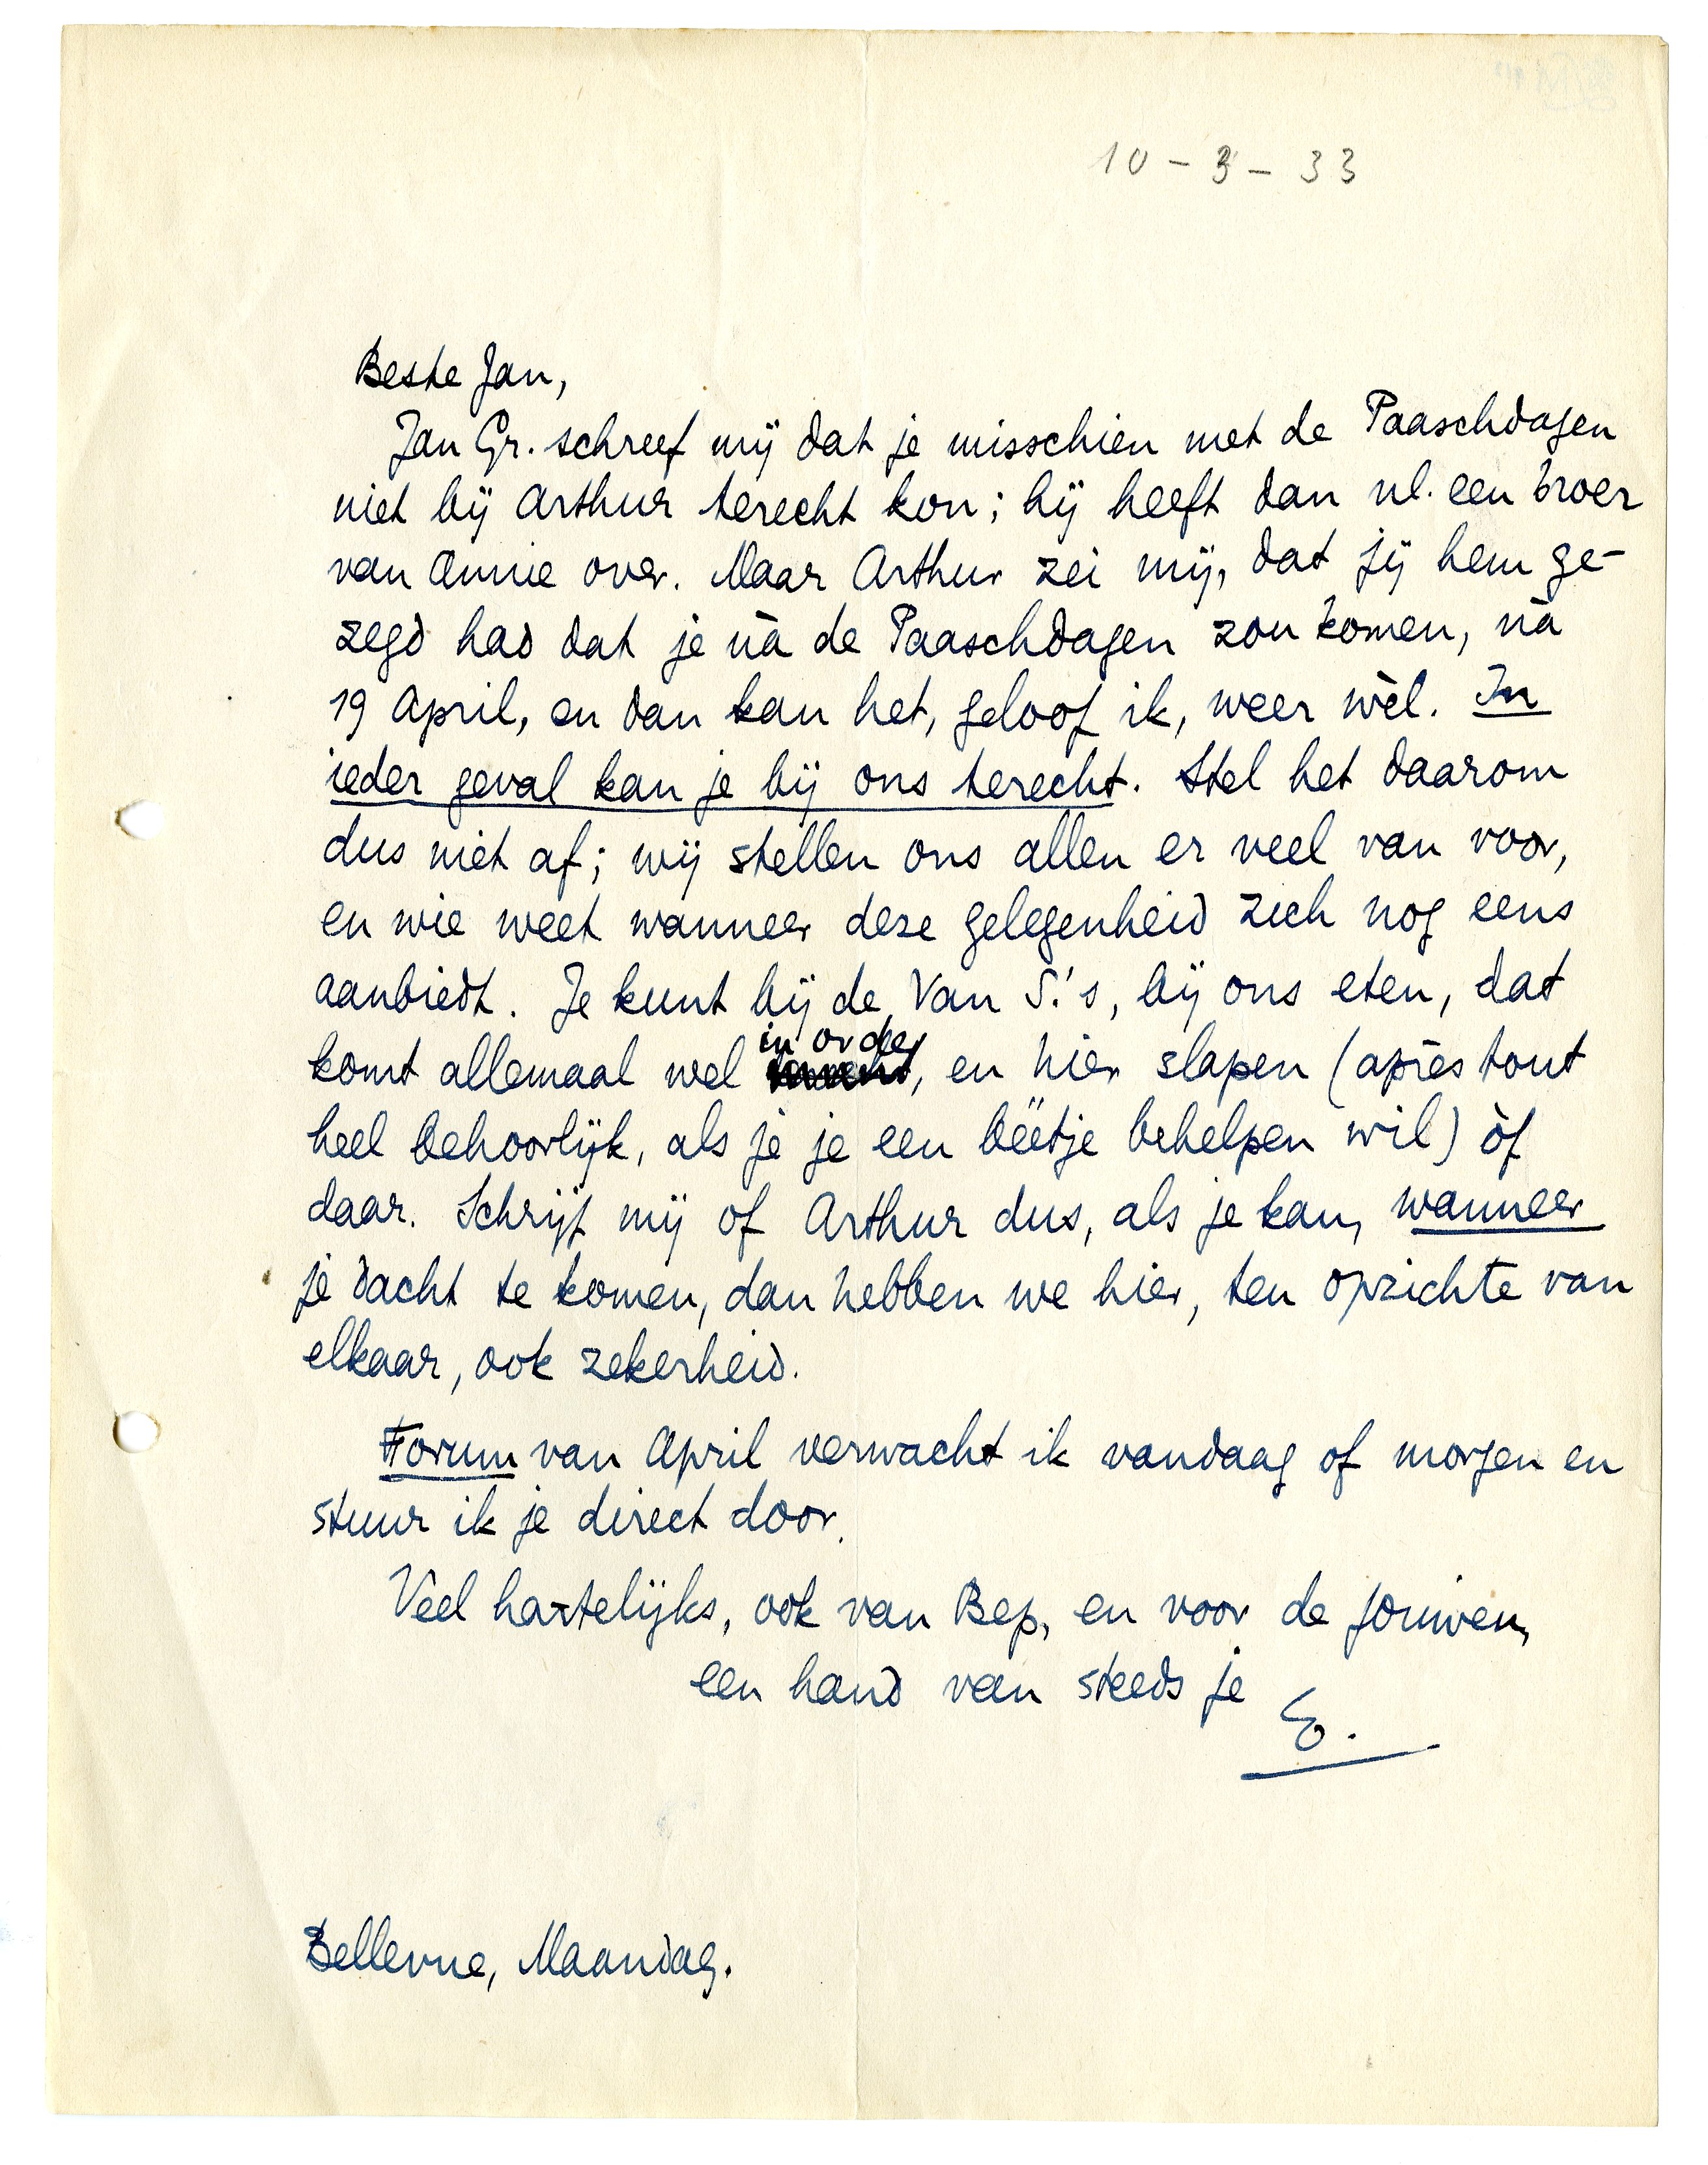 10 - 3 - 33
Beste Jan,
Jan Gr. schreef mij dat je misschien met de Paaschdagen
niet bij Arthur terecht kon; hij heeft dan nl. een broer
van Annie over. Maar Arthur zei mij, dat jij hem ge-
zegd had dat je nà de Paaschdagen zou komen, nà
19 April, en dan kan het, geloof ik, weer wèl. In
ieder geval kan je bij ons terecht. Stel het daarom
dus niet af; wij stellen ons allen er veel van voor,
en wie weet wanneer deze gelegenheid zich nog eens
aanbiedt. Je kunt bij de Van S.'s, bij ons eten, dat
in orde
komt allemaal wel , en hier slapen (après tout
heel behoorlijk, als je je een beetje behelpen wil) òf
daar. Schrijf mij of Arthur dus, als je kan, wanneer
je dacht te komen, dan hebben we hier, ten opzichte van
elkaar, ook zekerheid.
Forum van April verwacht ik vandaag of morgen en
stuur ik je direct door.
Veel hartelijks, ook van Bep, en voor de jouwen,
een hand van steeds je
E.
Bellevue, Maandag.